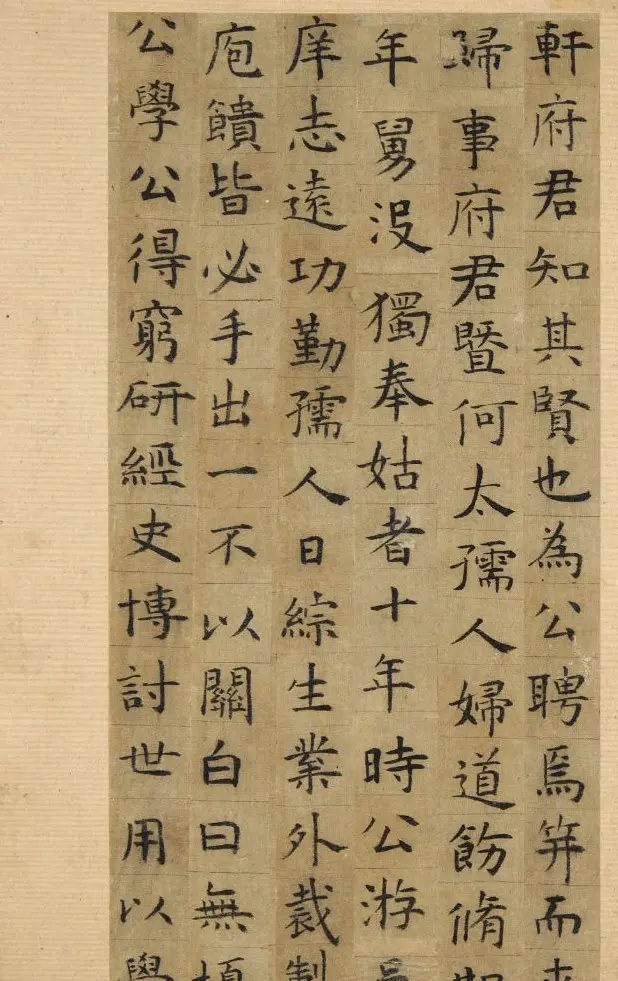 軒府君知其賢也為公聘焉笄而來
歸事府君暨何太孺人婦道飭脩
年舅没獨奉姑者十年時公游
庠志遠功勤孺人日綜生業外裁制
庖饋皆必手出一不以關白曰無
公學公得窮研經史博討世用以學